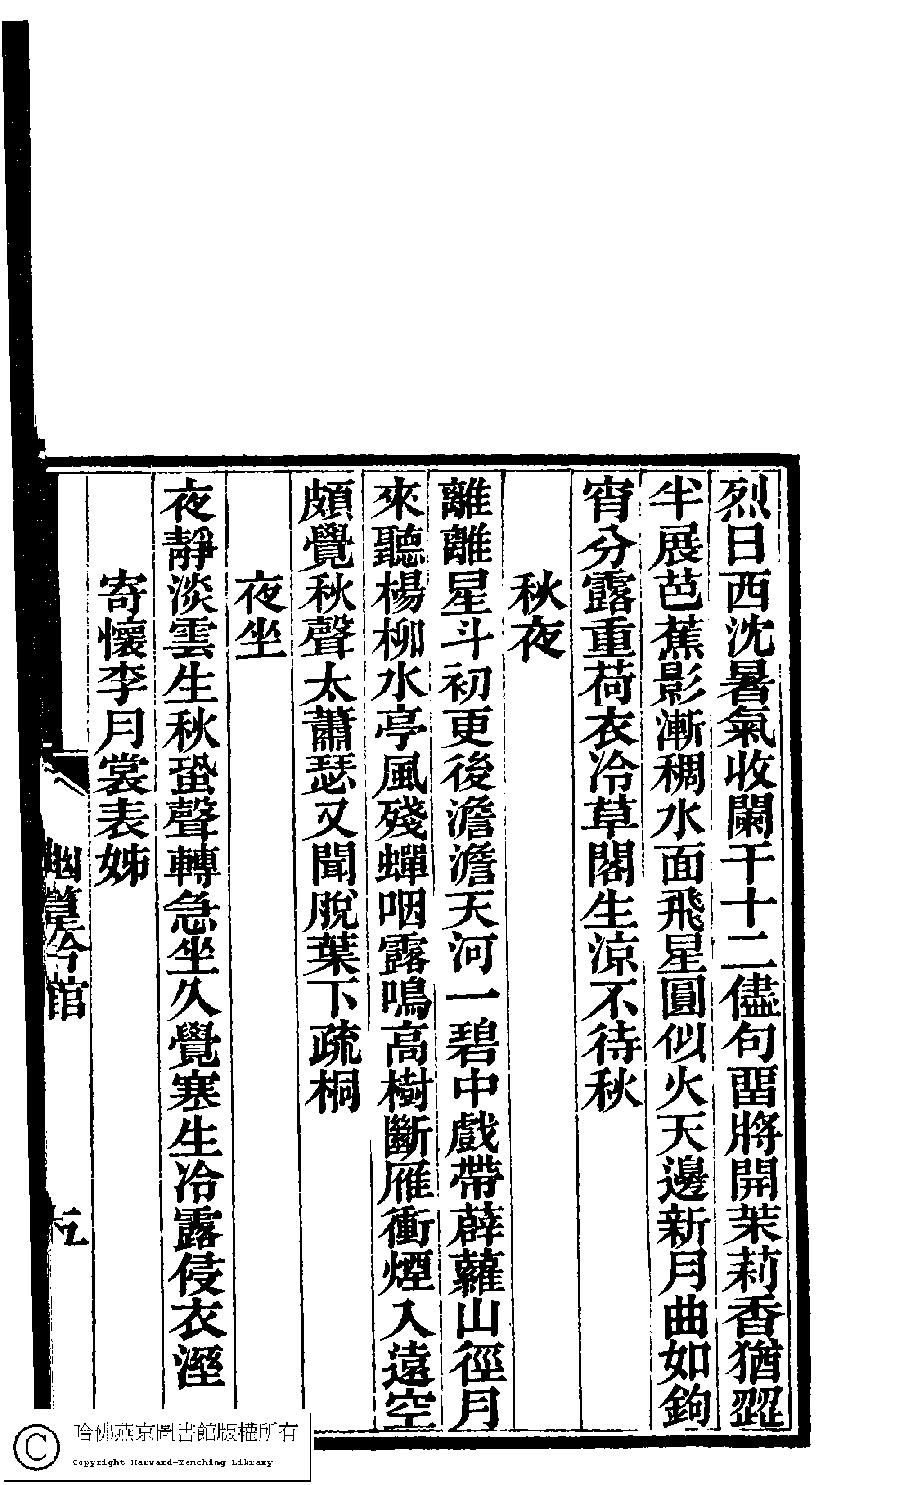 烈日西沈暑氣收闌干十二儘句畱將開茉莉香猶澀
半展芭蕉影漸稠水面飛星圓似火天邊新月曲如鉤
宵分露重荷衣冷草閣生涼不待秋
秋夜
離離星斗初更後澹澹天河一碧中戲帶薜蘿山徑月
來聽楊柳水亭風殘蟬咽露鳴高樹斷雁衝煙入遠空
頗覺秋聲太蕭瑟又聞脫葉下疏桐
夜坐
夜靜淡雲生秋蛩聲轉急坐久覺寒生冷露侵衣溼
寄懷李月裳表姊
幽篁吟館
五
哈佛燕京圖書館版權所有
Copyright Harvard-Yenching Library